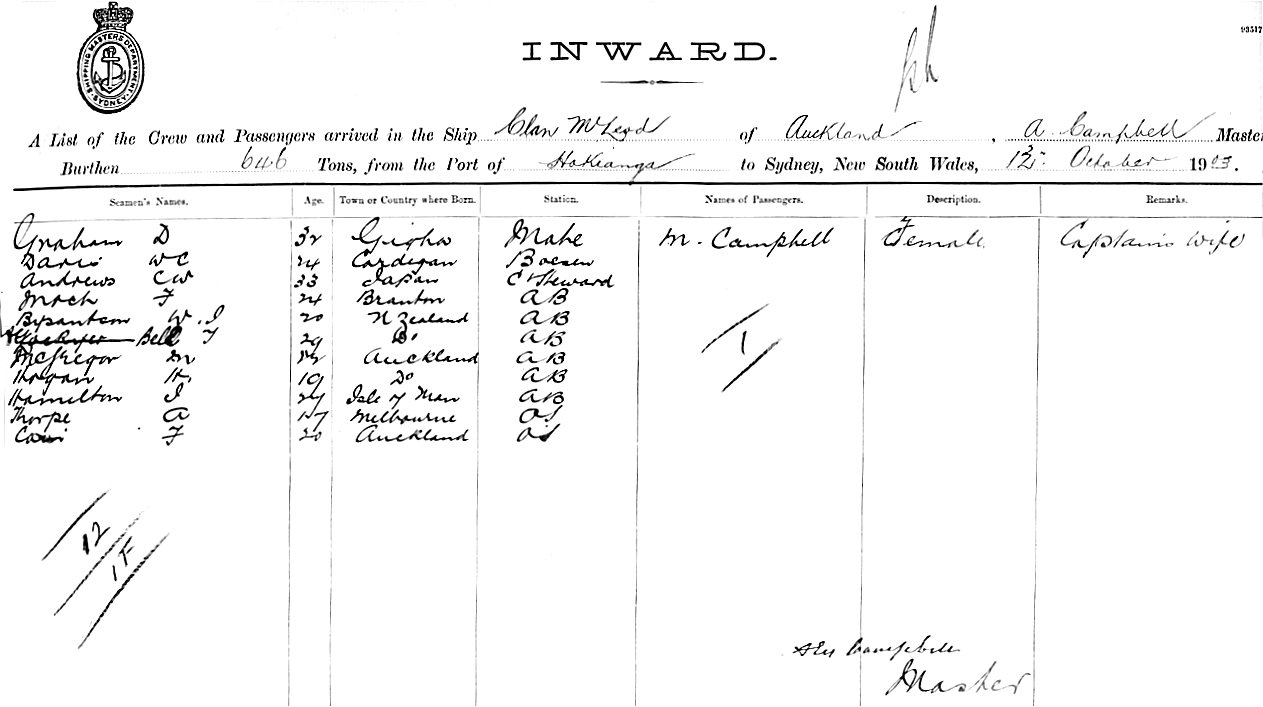 93517
SHIPPING MASTERS DEPARTMENT SYDNEY
INWARD.
A List of the Crew and Passengers arrived in the Ship Clan McLeod of Auckland, A. Campbell Master
Burthen 646 Tons, from the Port of Hokianga to Sydney, New South Wales, 12 October 1903.
Seamen's Names. Age. Town or Country where Born. Station. Names of Passengers. Description. Remarks.
Graham D 32 Gigha Mate M. Campbell Female Captains Wife
Davis W C 24 Cardigan Bosun
Andrews C W 33 Japan C & Steward
Moch F 24 Branton A B
W. J 20 N Zealand A B
Bell F 29 Do A B
McGregor M Auckland A B
Hogan H. 19 Do A B
Hamilton J 24 Isle of Man A B
Thorpe A 17 Melbourne O S
F 20 Auckland O S
1
12
1 F
Campbell
Master